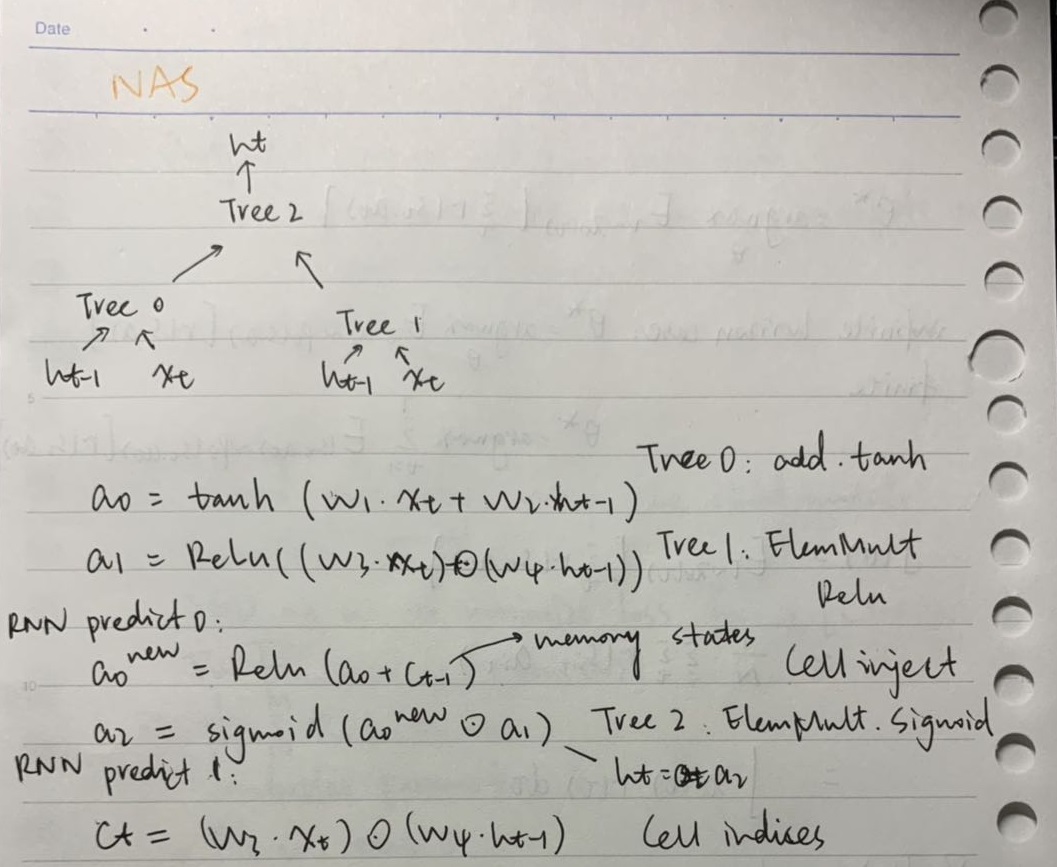 Date
NAS
ht
Tree 2
Tree 0
Tree 1
ht-1 xt ht-1 xt
5
Tree 0: add. tanh
a0 = tanh (W1 · xt + W2 · ht-1)
a1 = Relu((W3 · xt) ⊙ (W4 · ht-1)) Tree 1: ElemMult
Relu
RNN predict 0:
a0^new = Relu (a0 + Ct-1) → memory states Cell inject
10
a2 = sigmoid (a0^new ⊙ a1) Tree 2: ElemMult. Sigmoid
RNN predict 1:
ht = a2
Ct = (W3 · xt) ⊙ (W4 · ht-1) Cell indises